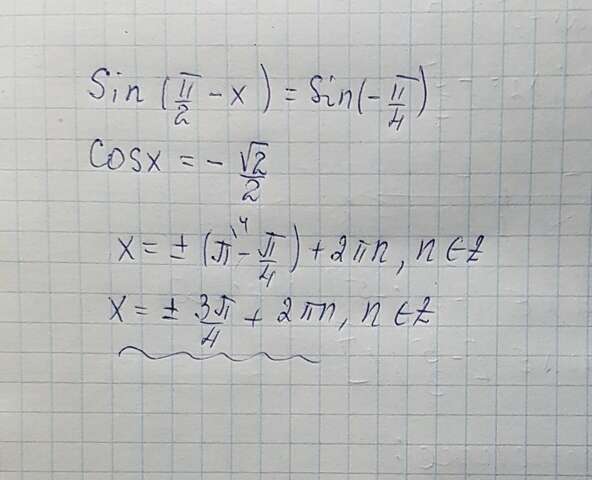 Sin (π/2 - x) = Sin(-π/4)
cosx = - √2/2
x = ± (π\4 - π/4) + 2πn, n ∈ Z
x = ± 3π/4 + 2πn, n ∈ Z